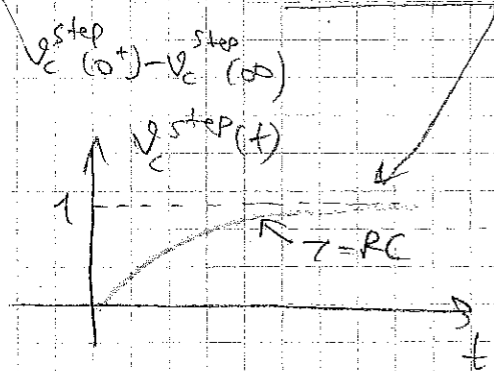 v_c^step(0⁺) - v_c^step(∞)
v_c^step(t)
1
τ = RC
t